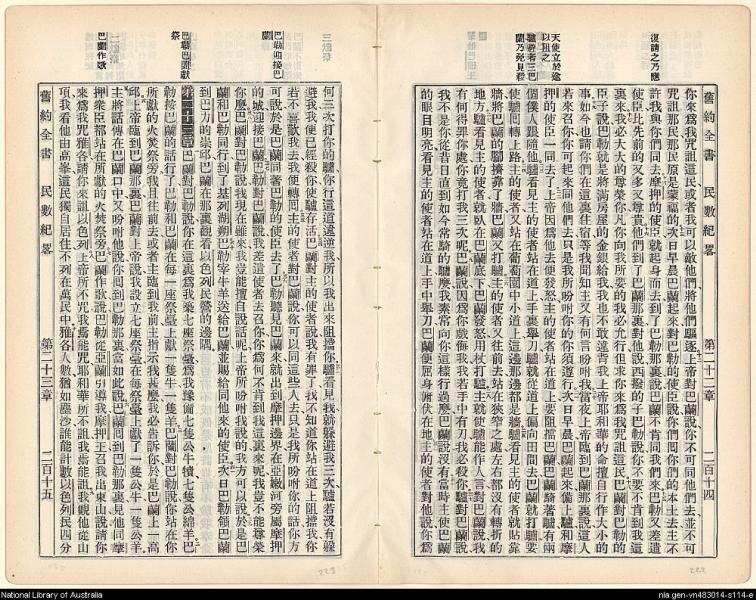 復請之乃應
天使立於途
以阻之
舊約全書 民數紀畧 第二十二章 二百十四
你來爲我咒詛這民或者我可以敵他們將他們驅逐上帝對巴蘭說你不可同他們去並不可
咒詛那民那民原是蒙福的次日早晨巴蘭起來對巴勒的使臣說你們囘你們的本土去主不
許我與你們同去摩押的使臣就起身而去到了巴勒那裏說巴蘭不肯同我們來巴勒又差遣
使臣比先前的又多又尊貴他們到了巴蘭那裏對他說西撥的子巴勒說你不要不肯到我這
裏來我必大大的尊榮你凡你向我所要的我必允行但求你來爲我咒詛這民巴蘭對巴勒的
臣子說巴勒就是將滿房屋的金銀給我我也不敢違背我上帝耶和華的命擅自行作大小的
事如今也請你們在這裏住宿等我聞知主又有何言吩咐我當夜上帝臨到巴蘭那裏說這人
若來召你你可起來同他們去只是我所吩咐你的你須遵行次日早晨巴蘭起來備上驢和摩
押的使臣一同去了上帝因爲他去便發怒主的使者站在道上要阻擋巴蘭巴蘭騎著驢有兩
個僕人跟隨他驢看見主的使者站在道上手裏舉刀驢就從道上偏向田間去巴蘭就打驢要
使驢囘轉上路主的使者又站在葡萄園中小道上這邊那邊都是牆驢看見主的使者就貼靠
牆將巴蘭的腳擠靠了牆巴蘭又打驢主的使者又往前去站在狹窄之處左右都沒有轉折的
地方驢看見主的使者就臥在巴蘭底下巴蘭發怒用杖打驢主就使驢能作人言對巴蘭說我
有何得罪你處你竟打我三次呢巴蘭說因爲你戲侮我我若手中有刃我必殺你驢對巴蘭說
我不是你從昔日直到如今常騎的驢麼我素常向你這樣行過麼巴蘭說沒有當時主使巴蘭
的眼目明亮看見主的使者站在道上手中舉刀巴蘭便屈身俯伏在地主的使者對他說你爲
巴勒迎接巴
蘭
巴勒巴蘭獻
祭
巴蘭作歌
何三次打你的驢你行這道違逆我所以我出來阻擋你驢看見我就躲避我三次驢若沒有躲
避我我便已經殺你使驢存活巴蘭對主的使者說我有罪了我不知道你站在道上阻擋我你
若不喜歡我去我便轉囘主的使者對巴蘭說你可以同這些人去只是我所吩咐你的話你方
可說於是巴蘭同著巴勒的使臣去了巴勒聽見巴蘭來就出到摩押邊界在亞嫩河旁屬摩押
的城迎接巴蘭巴勒對巴蘭說我差遣使者去召你你爲何不肯到我這裏來呢我豈不能尊榮
你麼巴蘭對巴勒說我現在雖來我豈能擅自說話呢上帝所吩咐我說的我方可以說於是巴
蘭和巴勒同行到了基列胡瑣巴勒宰牛羊送給巴蘭並賜給同他來的使臣次日巴勒領巴蘭
到巴力的崇邱巴蘭在那裏觀看以色列民營的邊隅
第二十三章 巴蘭對巴勒說你在這裏爲我築七座祭臺爲我豫備七隻公牛犢七隻公綿羊巴
勒按巴蘭的話行了巴勒和巴蘭在每一座祭臺上獻一隻牛一隻羊巴蘭對巴勒說你站在你
所獻的火焚祭旁我且往前去或者主臨到我前主指示我甚麼我必告訴你於是巴蘭上一高
邱上帝臨到巴蘭那裏巴蘭對上帝說我設立七座祭臺在每祭臺上獻了一隻公牛一隻公羊
主將話傳在巴蘭口中又吩咐他說你囘到巴勒那裏當如此說巴蘭囘到巴勒那裏見他同摩
押衆臣都站在所獻的火焚祭旁巴蘭作歌說巴勒從亞蘭引導我摩押王召我出東山說請你
來爲我咒雅各請你來詛以色列上帝所不咒我焉能咒耶和華所不詛我焉能詛我觀他從山
項我看他由高峯這民獨自居住不列在萬民中雅各人數猶如塵沙誰能計數以色列民四分
舊約全書 民數紀畧 第二十三章 二百十五
National Library of Australia
nla.gen-vn483014-s114-e